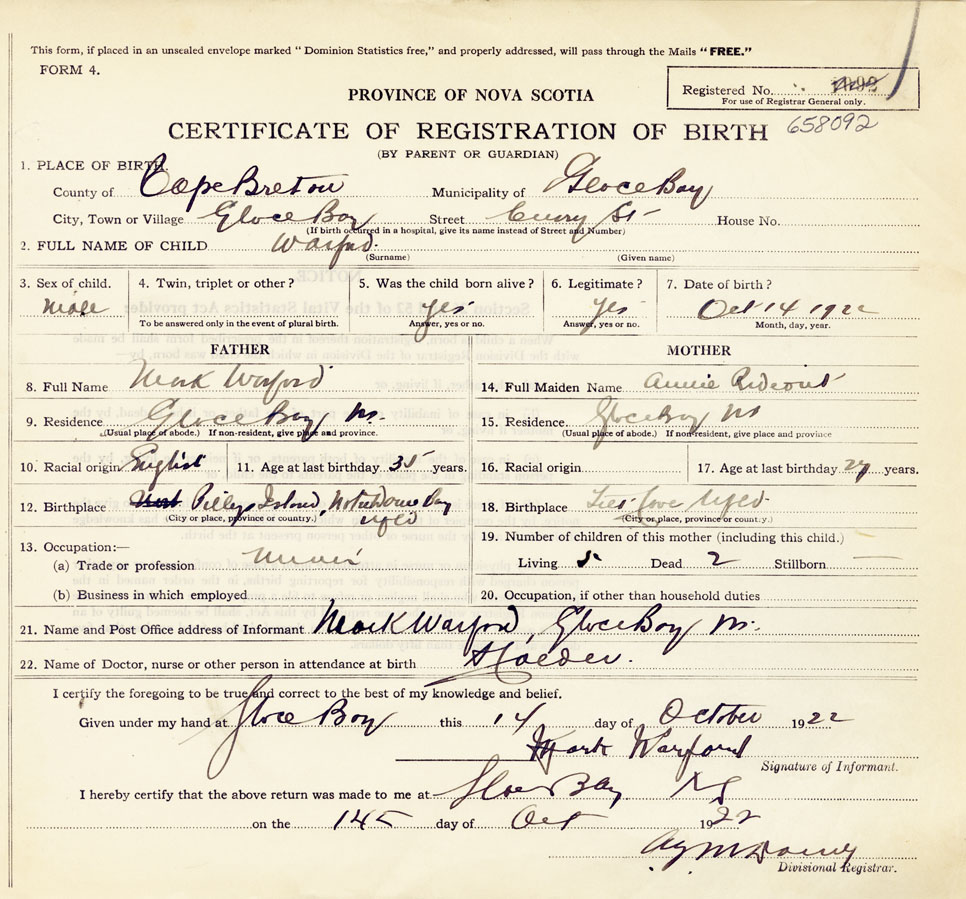 This form, if placed in an unsealed envelope marked “ Dominion Statistics free,” and properly addressed, will pass through the Mails “ FREE.”
FORM 4.
Registered No.
For use of Registrar General only.
PROVINCE OF NOVA SCOTIA
CERTIFICATE OF REGISTRATION OF BIRTH 658092
(BY PARENT OR GUARDIAN)
1. PLACE OF BIRTH
County of Cape Breton Municipality of Glace Bay
City, Town or Village Glace Bay Street St House No.
(If birth occurred in a hospital, give its name instead of Street and Number)
2. FULL NAME OF CHILD Warford
(Surname) (Given name)
3. Sex of child. 4. Twin, triplet or other? 5. Was the child born alive? 6. Legitimate? 7. Date of birth?
Male Yes Yes Oct 14 1922
To be answered only in the event of plural birth. Answer, yes or no. Answer, yes or no. Month, day, year.
FATHER MOTHER
8. Full Name Mark Warford 14. Full Maiden Name Annie Rideout
9. Residence Glace Bay Ns 15. Residence Glace Bay Ns
(Usual place of abode.) If non-resident, give place and province. (Usual place of abode.) If non-resident, give place and province
10. Racial origin English 11. Age at last birthday 35 years. 16. Racial origin 17. Age at last birthday 27 years.
12. Birthplace Pilleys Island, Notre Dame Bay 18. Birthplace Cove Nfld
(City or place, province or country.) Nfld (City or place, province or country.)
13. Occupation:— 19. Number of children of this mother (including this child.)
(a) Trade or profession Miner Living 5 Dead 2 Stillborn
(b) Business in which employed 20. Occupation, if other than household duties
21. Name and Post Office address of Informant Mark Warford, Glace Bay Ns.
22. Name of Doctor, nurse or other person in attendance at birth
I certify the foregoing to be true and correct to the best of my knowledge and belief.
Given under my hand at Glace Bay this 14 day of October 1922
Mark Warford
Signature of Informant.
I hereby certify that the above return was made to me at Glace Bay NS
on the 14 day of Oct 1922
Divisional Registrar.